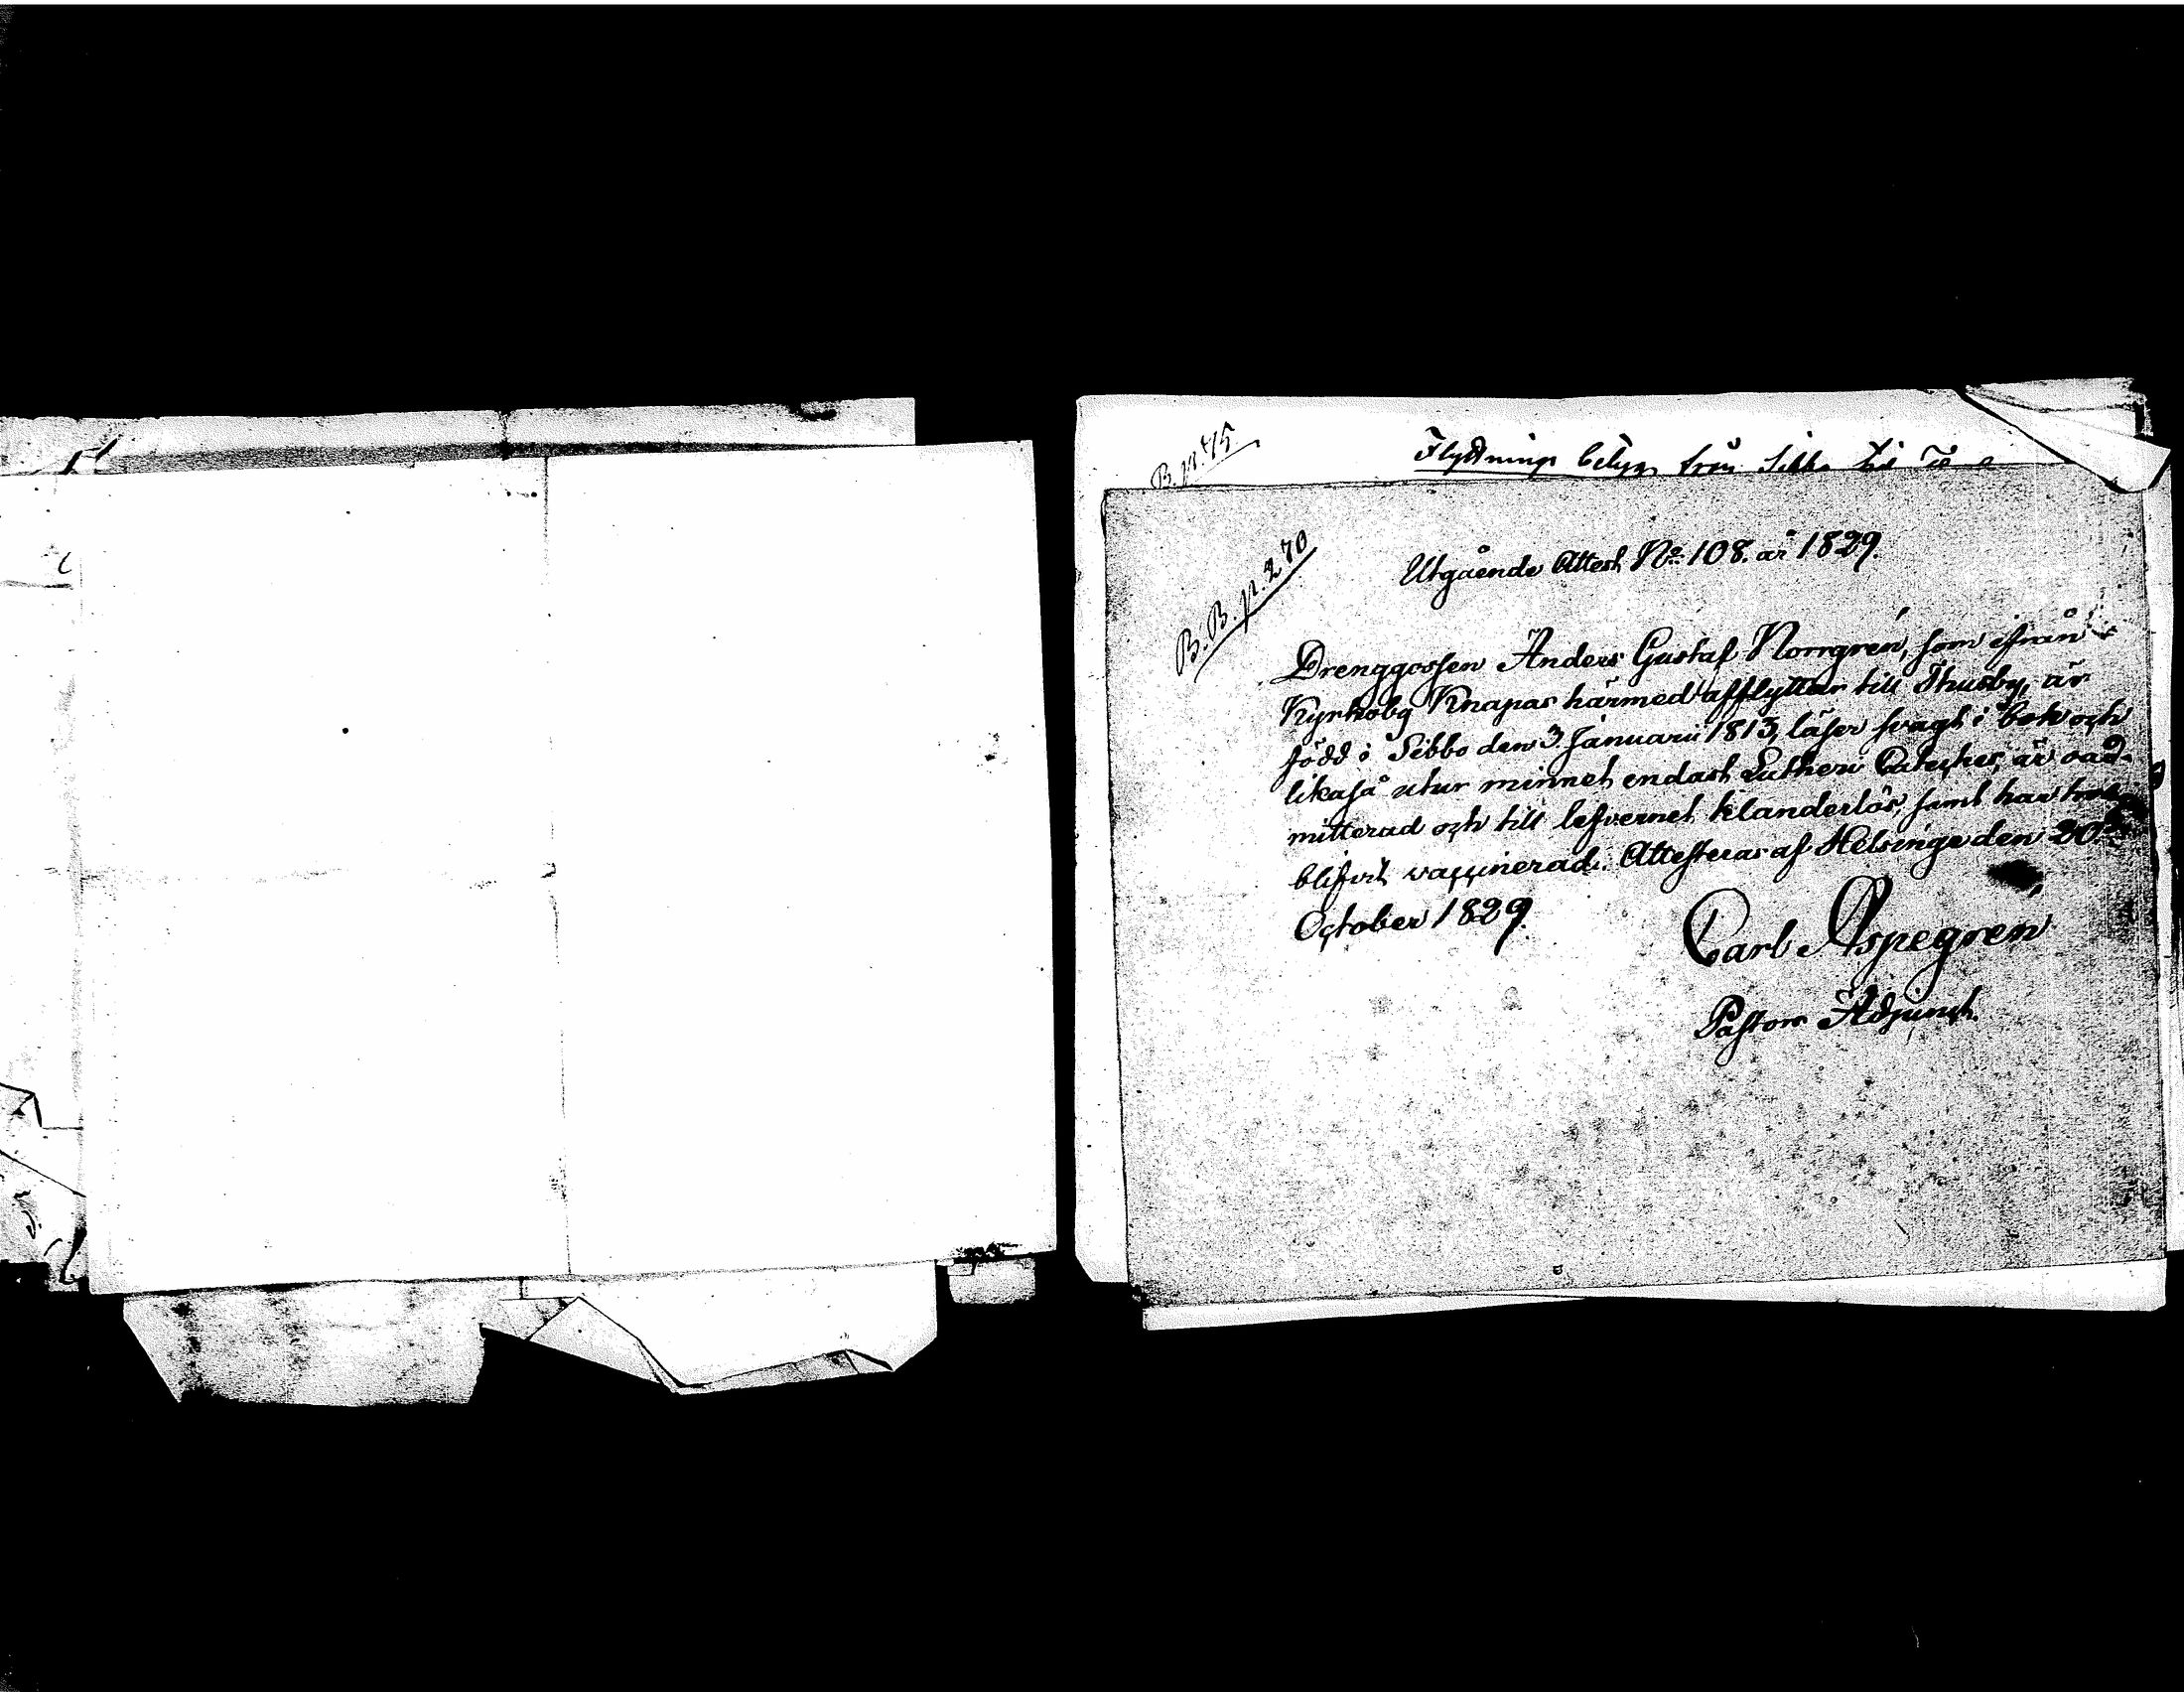 B. p. 475
Flyttnings betyg från Sibbo till
B. B. p. 270
Utgående Attest No 108. år 1829.
Drenggossen Anders Gustaf Norrgrén, som ifrån
Kyrkoby Knapas härmed afflyttar till Thusby, är
född i Sibbo den 3 Januarii 1813, läser svagt i bok och
likaså utur minnet endast Lutheri Cateches, är oad-
mitterad och till lefvernet klanderlös, samt har
blifvit vaccinerad. Attesteras af Helsinge den 20
October 1829.
Carl Aspegren
Pastors Adjunct.